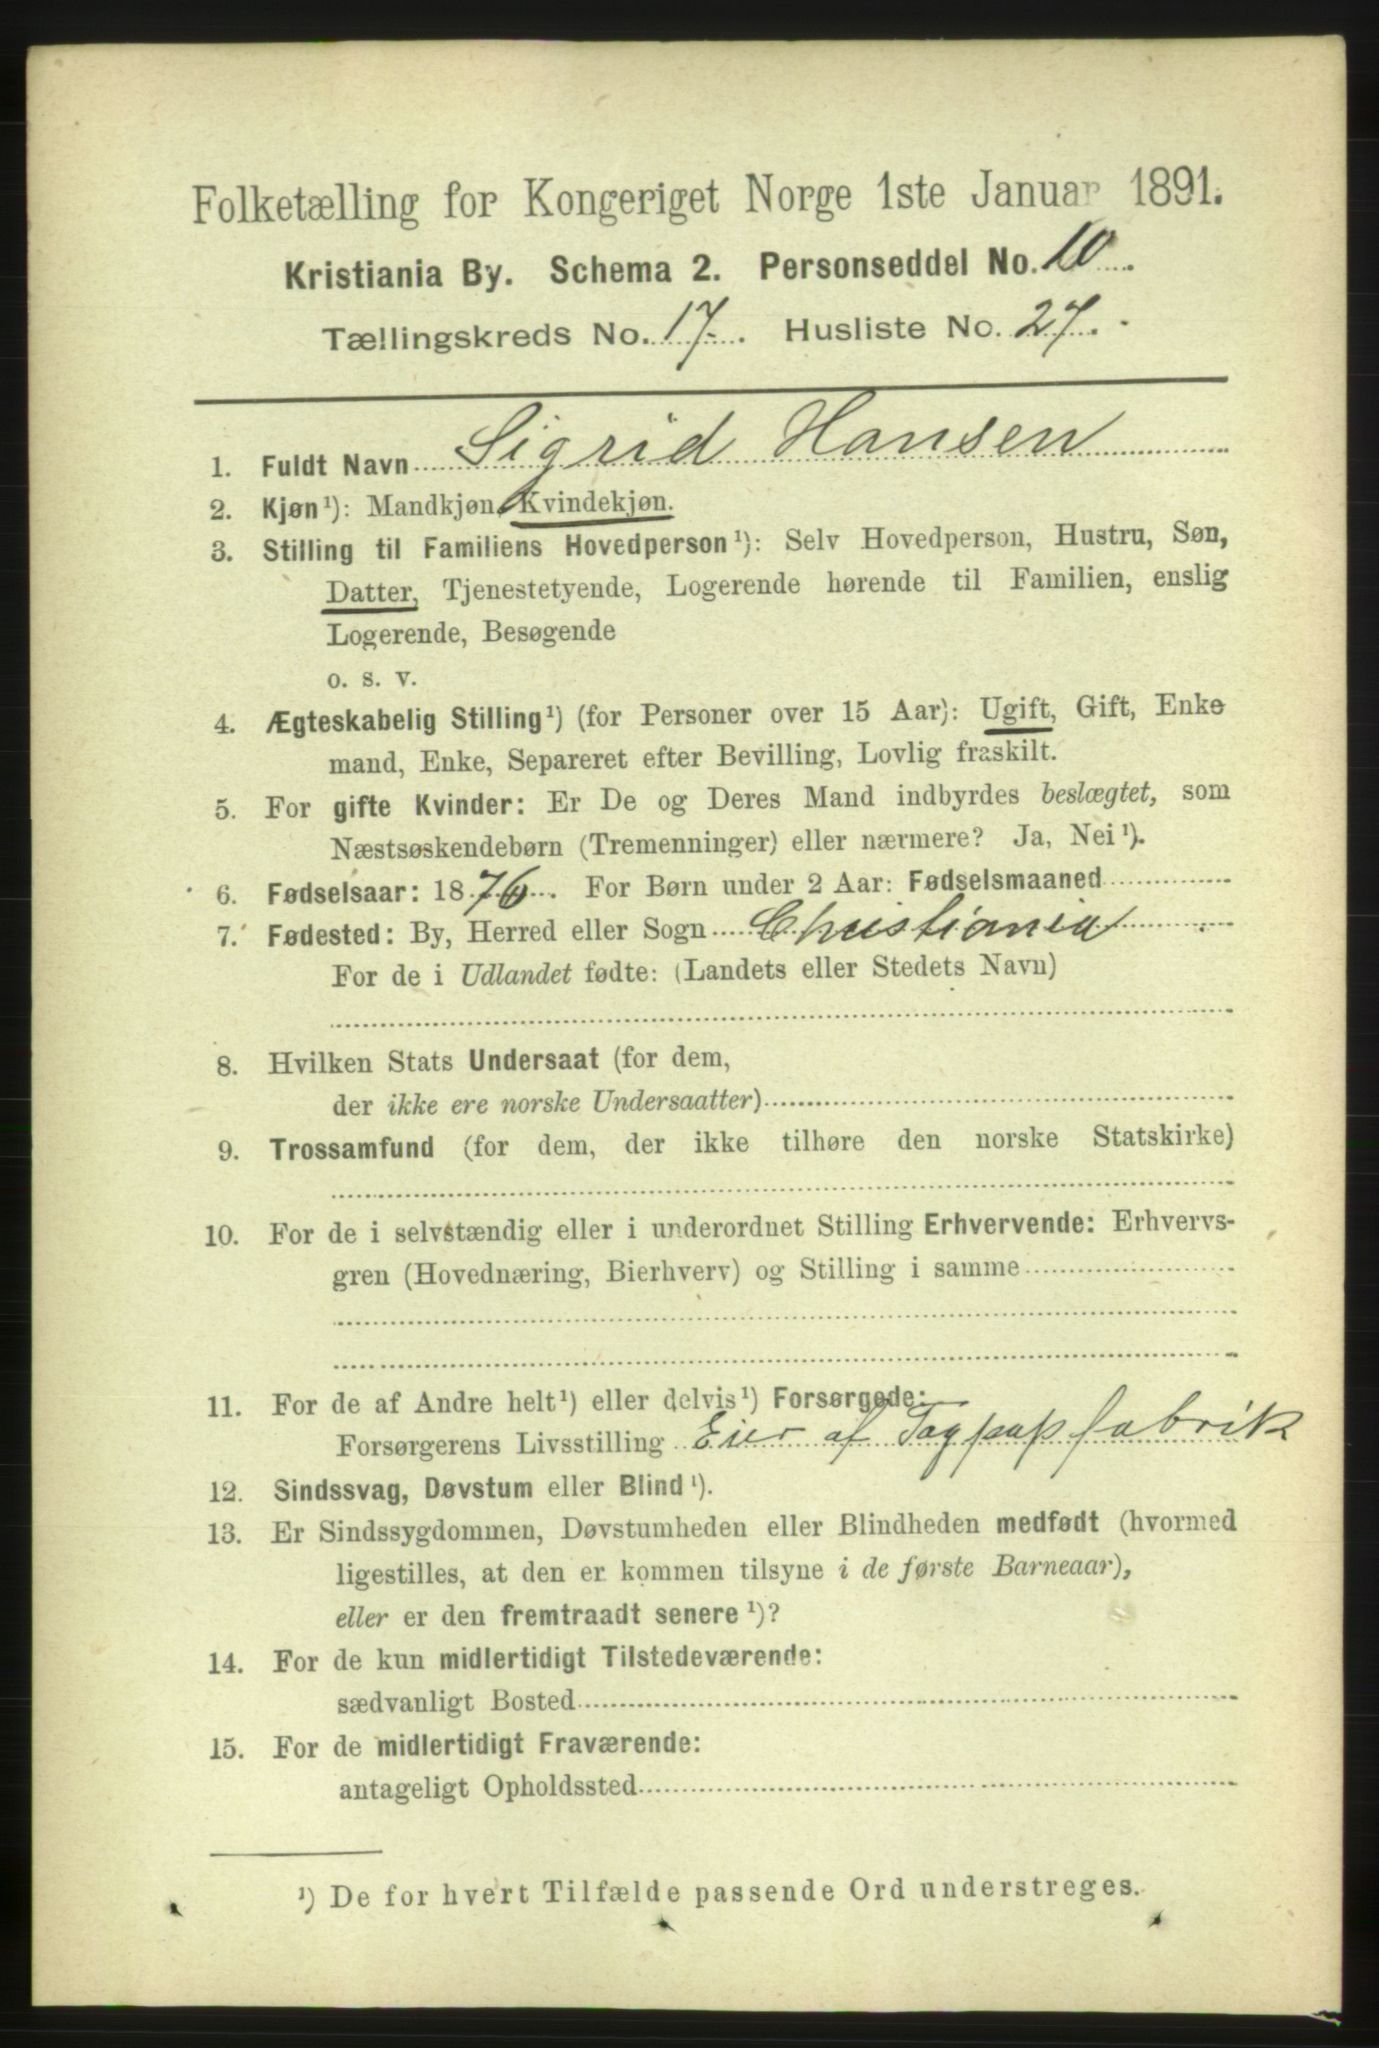 Folketælling for Kongeriget Norge 1ste Januar 1891.
Kristiania By. Schema 2. Personseddel No. 10
Tællingskreds No. 17. Husliste No. 27.
1. Fuldt Navn Sigrid Hansen
2. Kjøn¹): Mandkjøn, Kvindekjøn.
3. Stilling til Familiens Hovedperson¹): Selv Hovedperson, Hustru, Søn,
Datter, Tjenestetyende, Logerende hørende til Familien, enslig
Logerende, Besøgende
o. s. v.
4. Ægteskabelig Stilling¹) (for Personer over 15 Aar): Ugift, Gift, Enke
mand, Enke, Separeret efter Bevilling, Lovlig fraskilt.
5. For gifte Kvinder: Er De og Deres Mand indbyrdes beslægtet, som
Næstsøskendebørn (Tremenninger) eller nærmere? Ja, Nei¹).
6. Fødselsaar: 1876. For Børn under 2 Aar: Fødselsmaaned
7. Fødested: By, Herred eller Sogn Christiania
For de i Udlandet fødte: (Landets eller Stedets Navn)
8. Hvilken Stats Undersaat (for dem,
der ikke ere norske Undersaatter)
9. Trossamfund (for dem, der ikke tilhøre den norske Statskirke)
10. For de i selvstændig eller i underordnet Stilling Erhvervende: Erhvervs-
gren (Hovednæring, Bierhverv) og Stilling i samme
11. For de af Andre helt¹) eller delvis¹) Forsørgede:
Forsørgerens Livsstilling Eier af Tagpapfabrik
12. Sindssvag, Døvstum eller Blind¹).
13. Er Sindssygdommen, Døvstumheden eller Blindheden medfødt (hvormed
ligestilles, at den er kommen tilsyne i de første Barneaar),
eller er den fremtraadt senere¹)?
14. For de kun midlertidigt Tilstedeværende:
sædvanligt Bosted
15. For de midlertidigt Fraværende:
antageligt Opholdssted
¹) De for hvert Tilfælde passende Ord understreges.